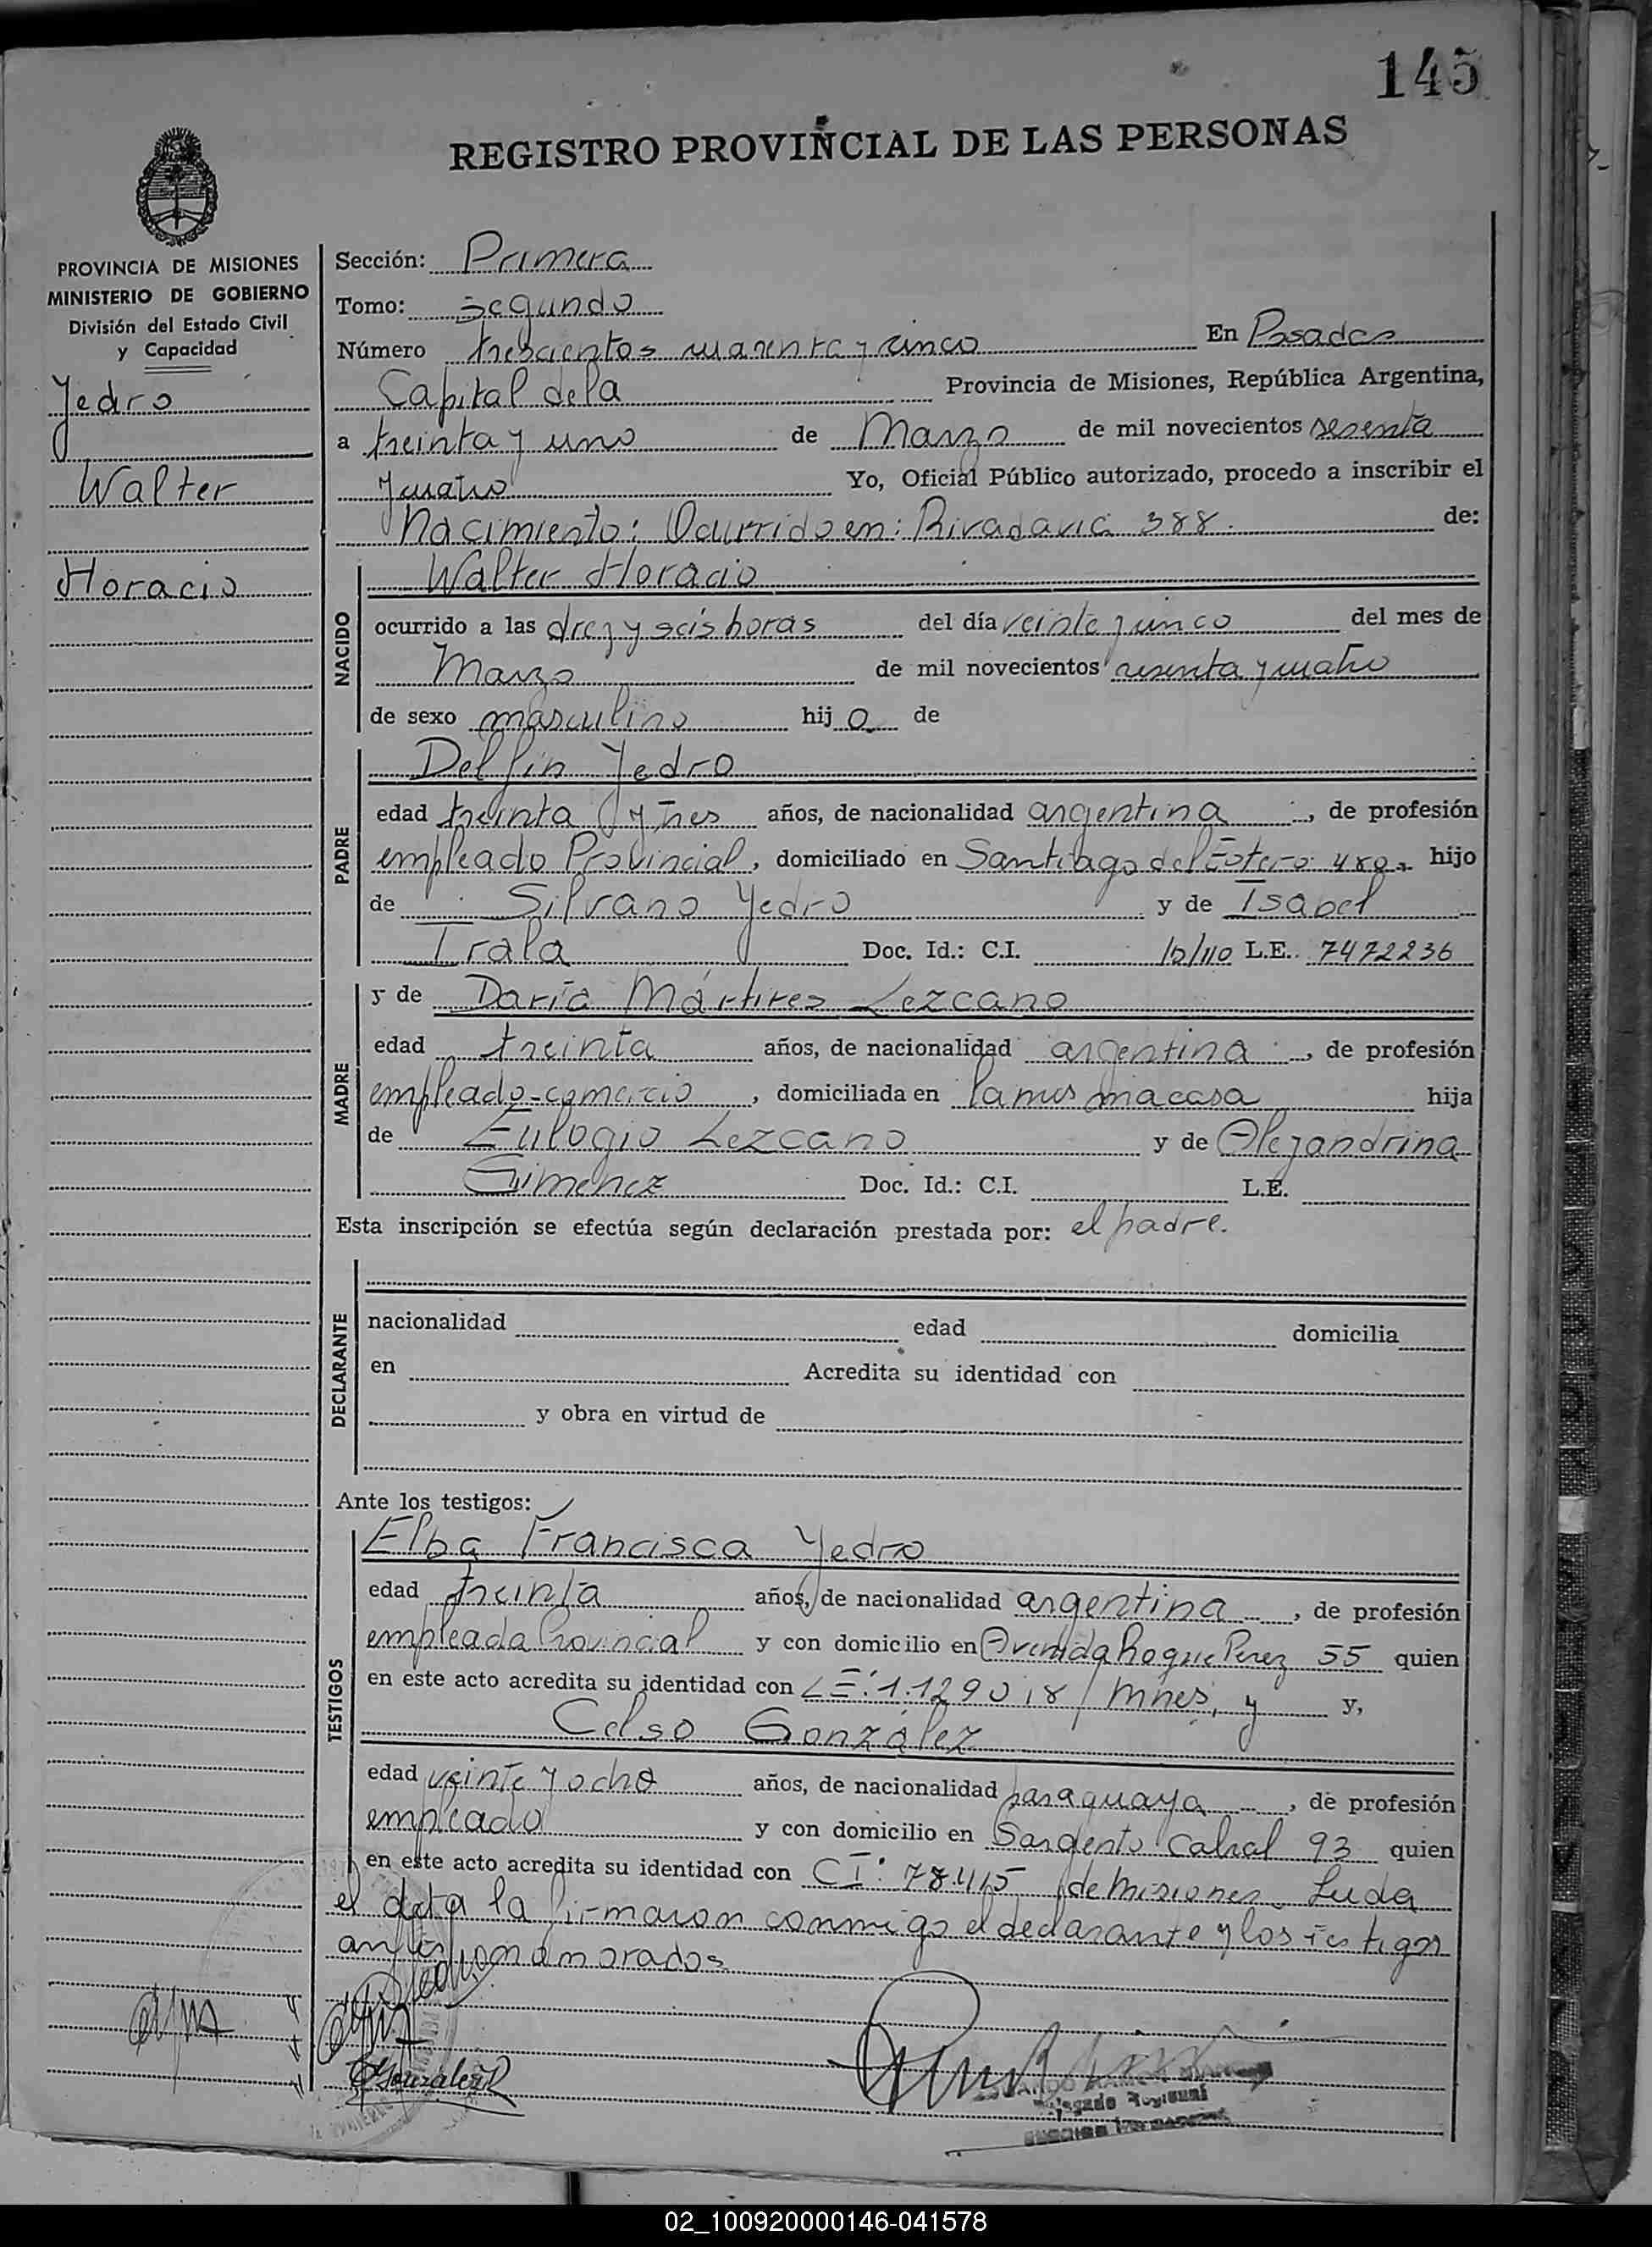 145
REGISTRO PROVINCIAL DE LAS PERSONAS
PROVINCIA DE MISIONES
MINISTERIO DE GOBIERNO
División del Estado Civil
y Capacidad
Yedro
Walter
Horacio
Sección: Primera
Tomo: Segundo
Número trescientos cuarenta y cinco En Posadas
Capital de la Provincia de Misiones, República Argentina,
a treinta y uno de Marzo de mil novecientos sesenta
y cuatro Yo, Oficial Público autorizado, procedo a inscribir el
Nacimiento: Ocurrido en: Rivadavia 388. de:
NACIDO
Walter Horacio
ocurrido a las diez y seis horas del día veinte y cinco del mes de
Marzo de mil novecientos sesenta y cuatro
de sexo masculino hij o de
PADRE
Delfín Yedro
edad treinta y tres años, de nacionalidad argentina, de profesión
empleado Provincial, domiciliado en Santiago del Estero 480 hijo
de Silvano Yedro y de Isabel
Irala Doc. Id.: C.I. L.E. 7472236
MADRE
y de Daría Mártires Lezcano
edad treinta años, de nacionalidad argentina, de profesión
empleado-comercio, domiciliada en la misma casa hija
de Eulogio Lezcano y de Alejandrina
Gimenez Doc. Id.: C.I. L.E.
Esta inscripción se efectúa según declaración prestada por: el padre.
DECLARANTE
nacionalidad edad domicilia
en Acredita su identidad con
y obra en virtud de
Ante los testigos:
TESTIGOS
Elba Francisca Yedro
edad treinta años, de nacionalidad argentina, de profesión
empleada Provincial y con domicilio en Avenida Roque Perez 55 quien
en este acto acredita su identidad con LE: 1.129018/Mnes, y y,
Celso González
edad veinte y ocho años, de nacionalidad paraguaya, de profesión
empleado y con domicilio en Sargento Cabral 93 quien
en este acto acredita su identidad con CI: 78415 de Misiones. Leida
el acta la firmaron conmigo el declarante y los testigos
antes nomamorados
Gonzalez
Delegado Regional
02_100920000146-041578